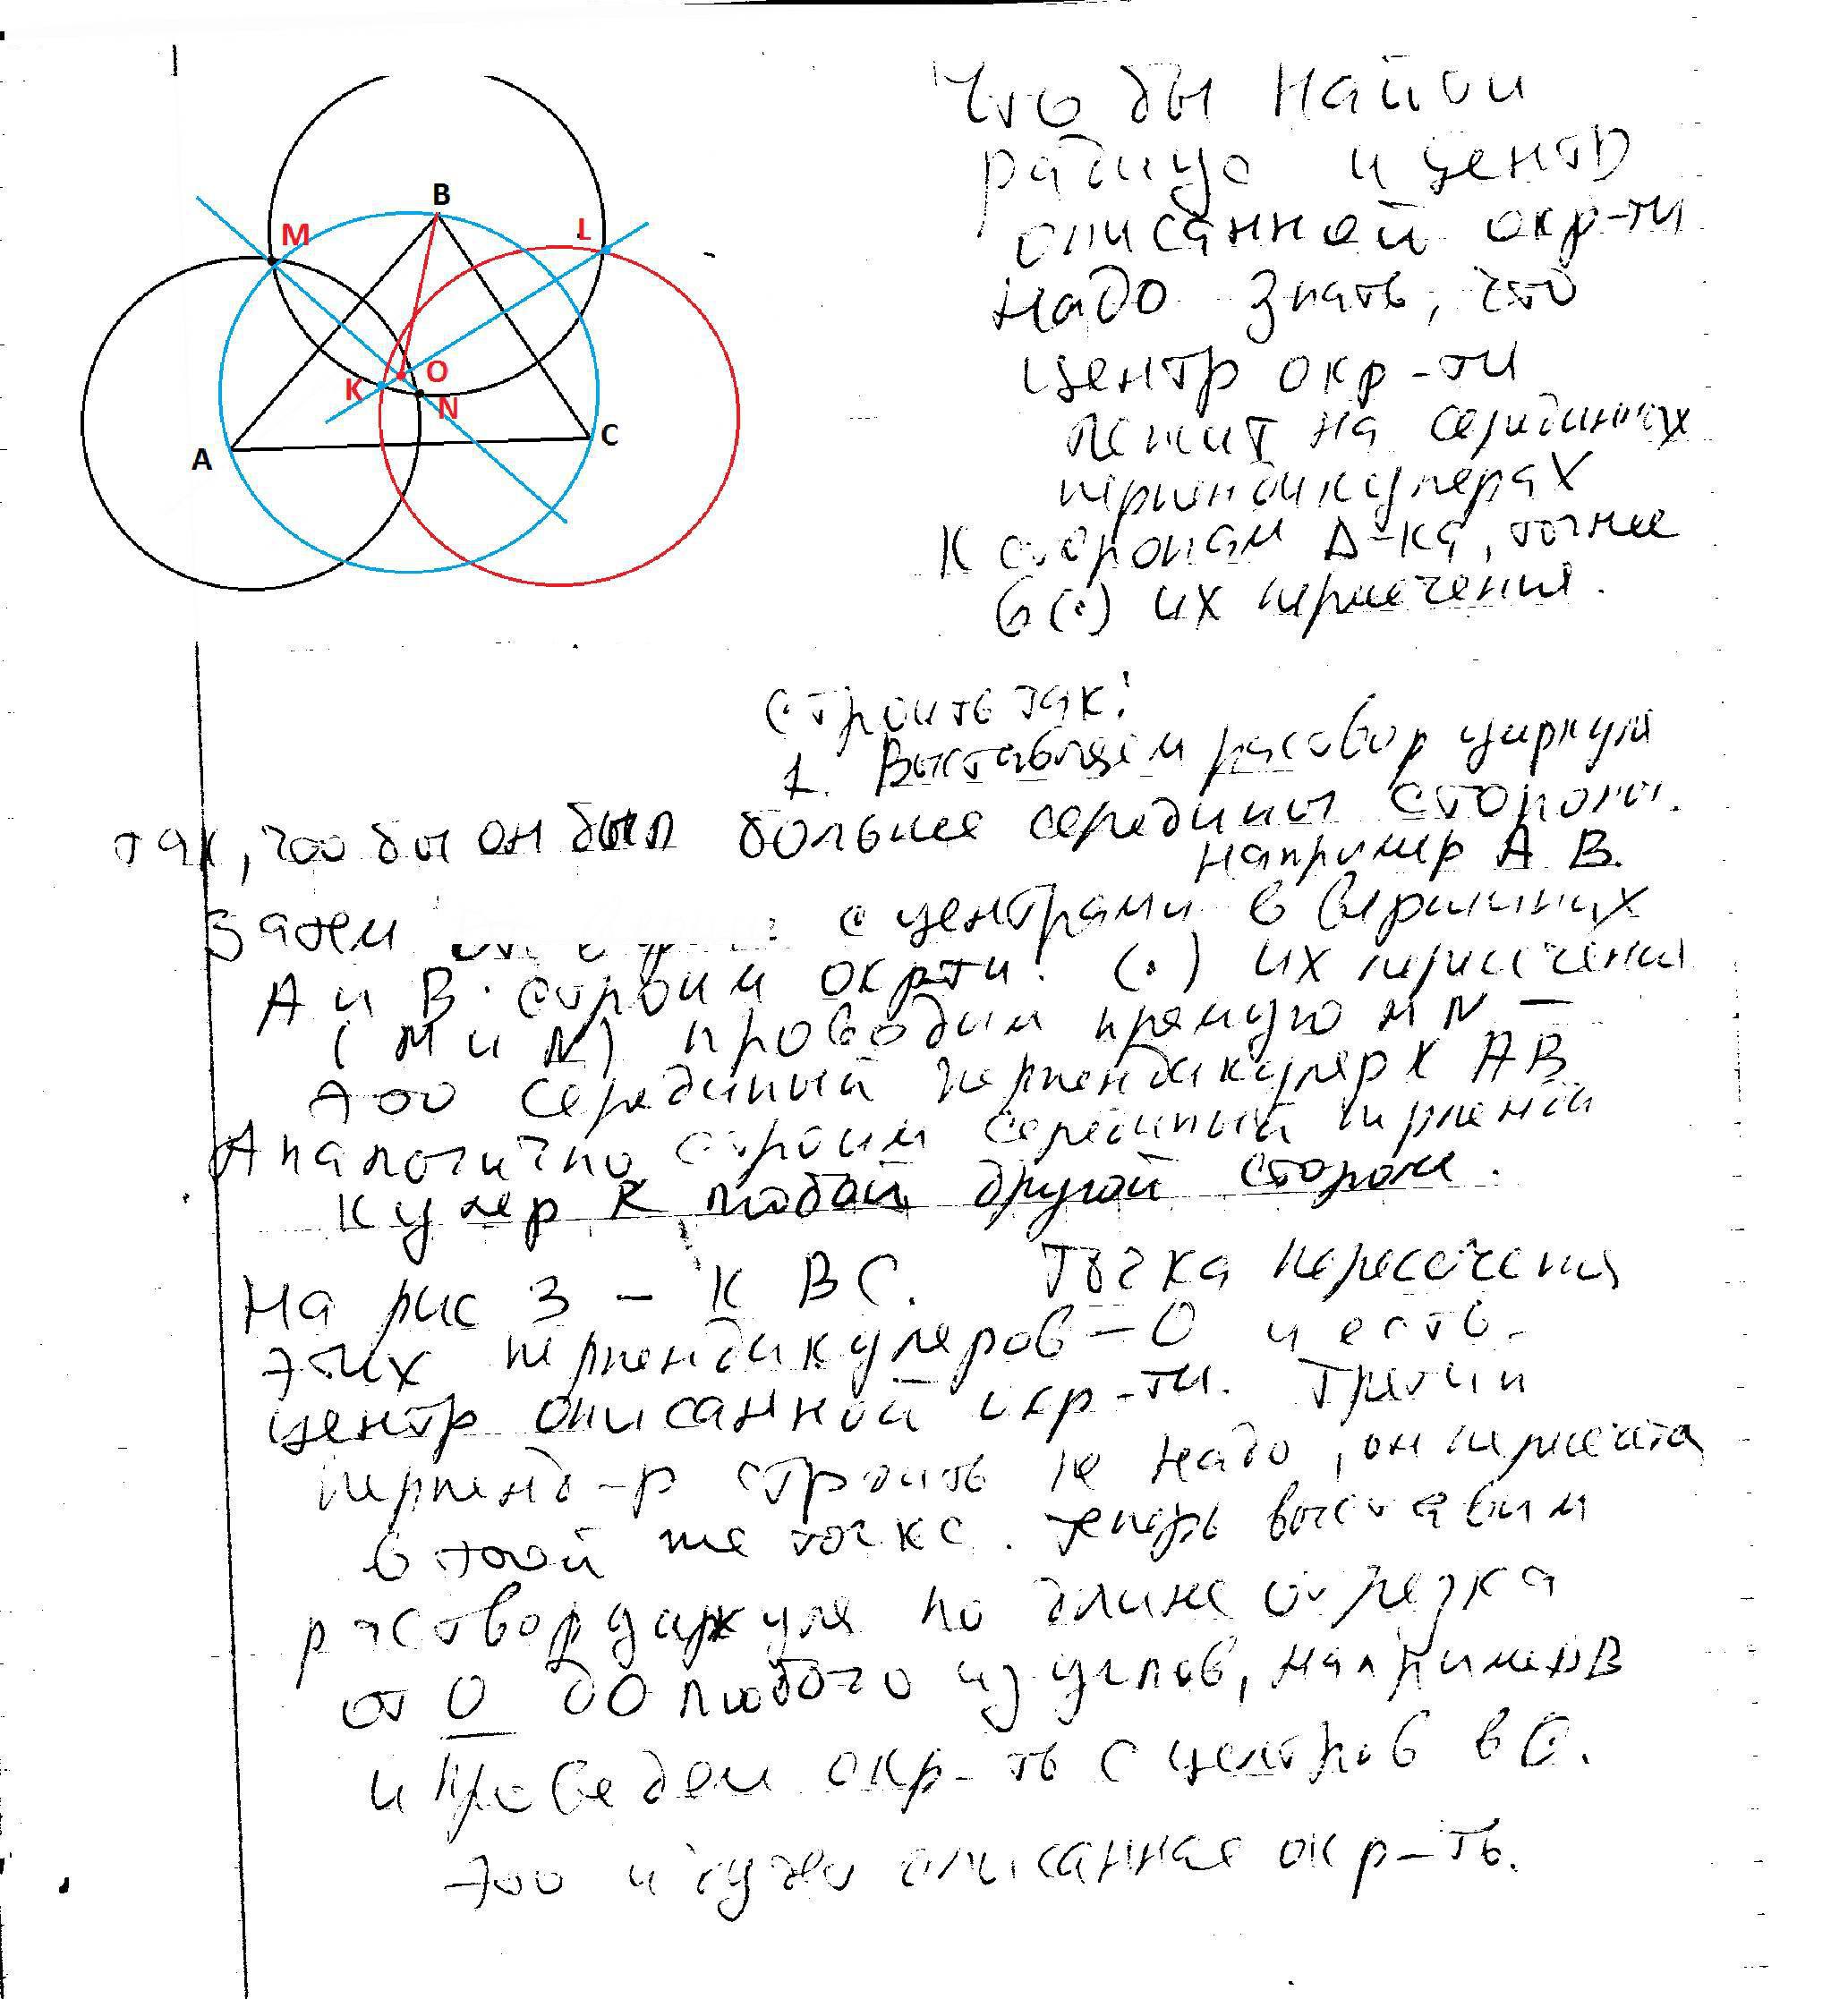 B
M
L
O
K
N
C
A
Что бы найти
радиус и центр
описанной окр-ти
надо знать, что
центр окр-ти
лежит на серединных
перпендикулерах
к сторонам Δ-ка, точнее
в (·) их пересечения.
Строить так:
1. Выставляем раствор циркуля
так, что бы он был больше середины стороны.
например А В.
Затем с центрами в вершинах
А и В строим окр-ти. (·) их пересечения
(М и N) проводим прямую MN —
это серединный перпендикуляр к АВ
Аналогично строим серединный перпенди
куляр к любой другой стороне.
На рис 3 - к ВС. Точка пересечения
этих перпендикуляров - О и есть
центр описанной окр-ти. Третий
перпенд-р строить не надо, он пересечёт
в этой же точке. Теперь выставим
раствор циркуля по длине отрезка
от О до любого из углов, например В
и проведем окр-ть с центров в О.
это и описанная окр-ть.